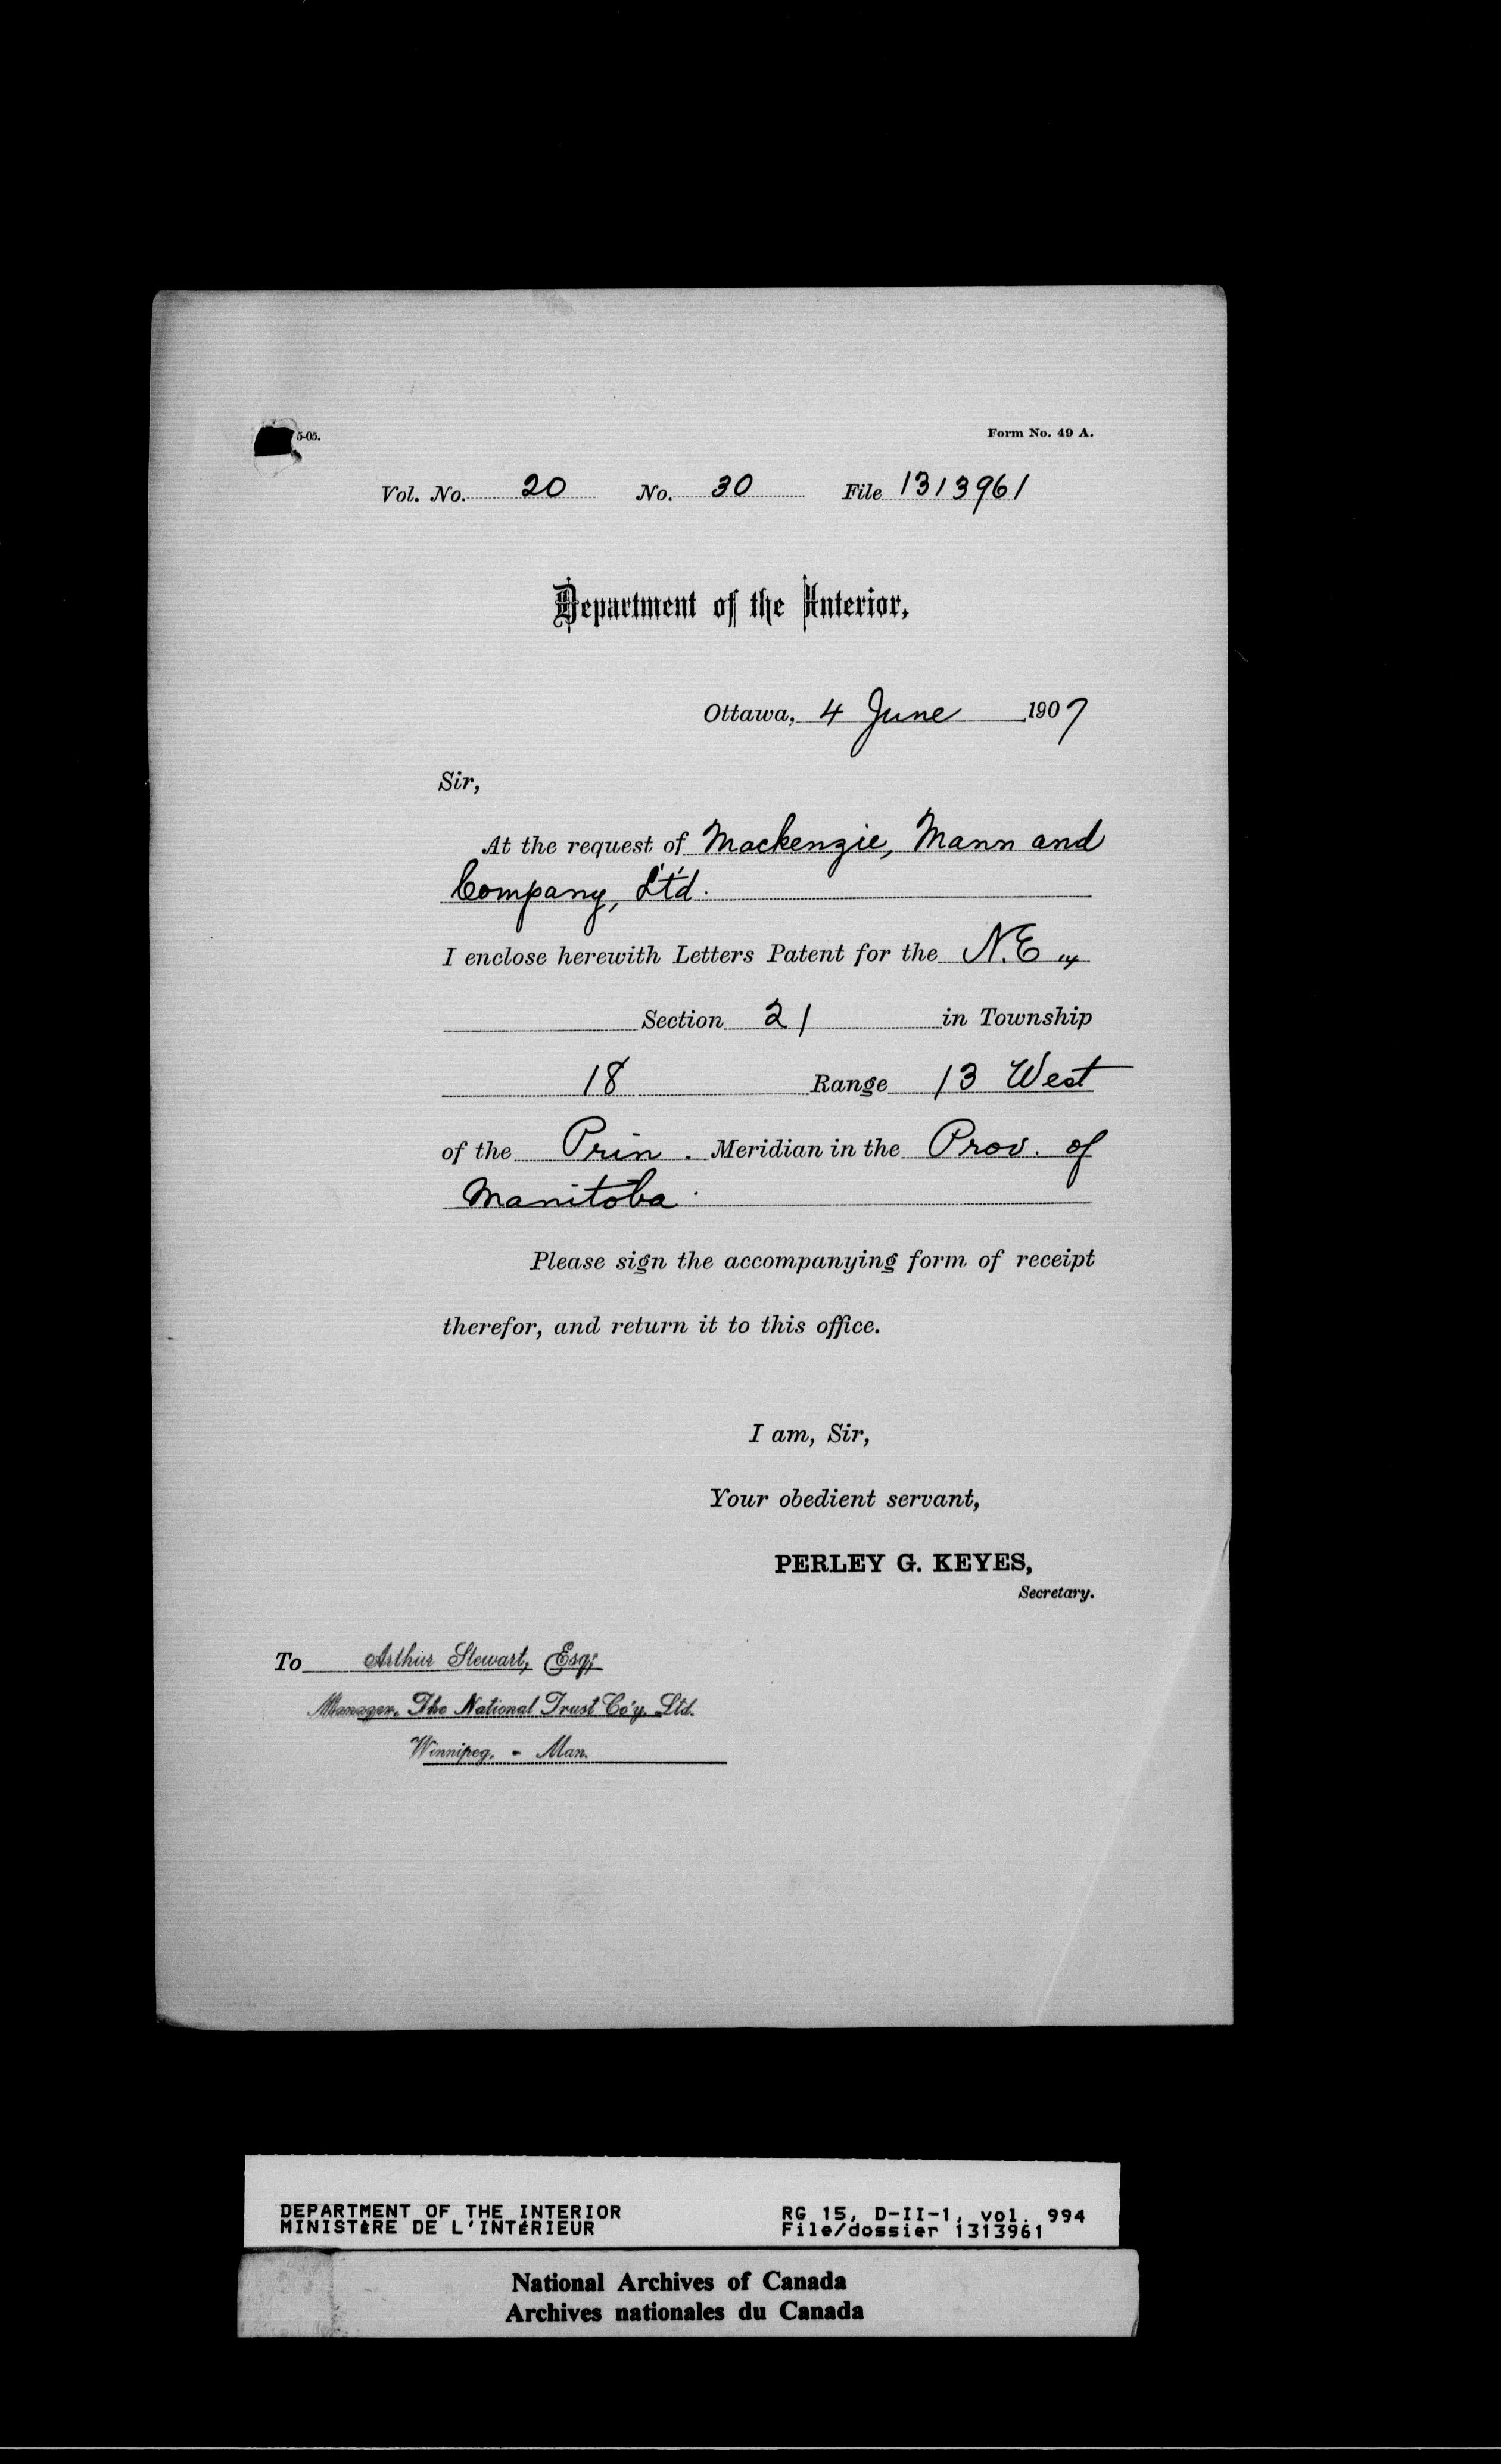 5-05.
Form No. 49 A.
Vol. No. 20 No. 30 File 1313961
Department of the Interior,
Ottawa, 4 June 1907
Sir,
At the request of Mackenzie, Mann and
Company, Ltd.
I enclose herewith Letters Patent for the N.E ¼
Section 21 in Township
18 Range 13 West
of the Prin. Meridian in the Prov. of
Manitoba.
Please sign the accompanying form of receipt
therefor, and return it to this office.
I am, Sir,
Your obedient servant,
PERLEY G. KEYES,
Secretary.
To Arthur Stewart, Esq;
Manager, The National Trust Co'y. Ltd.
Winnipeg, - Man.
DEPARTMENT OF THE INTERIOR
MINISTÈRE DE L'INTÉRIEUR
RG 15, D-II-1, vol. 994
File/dossier 1313961
National Archives of Canada
Archives nationales du Canada